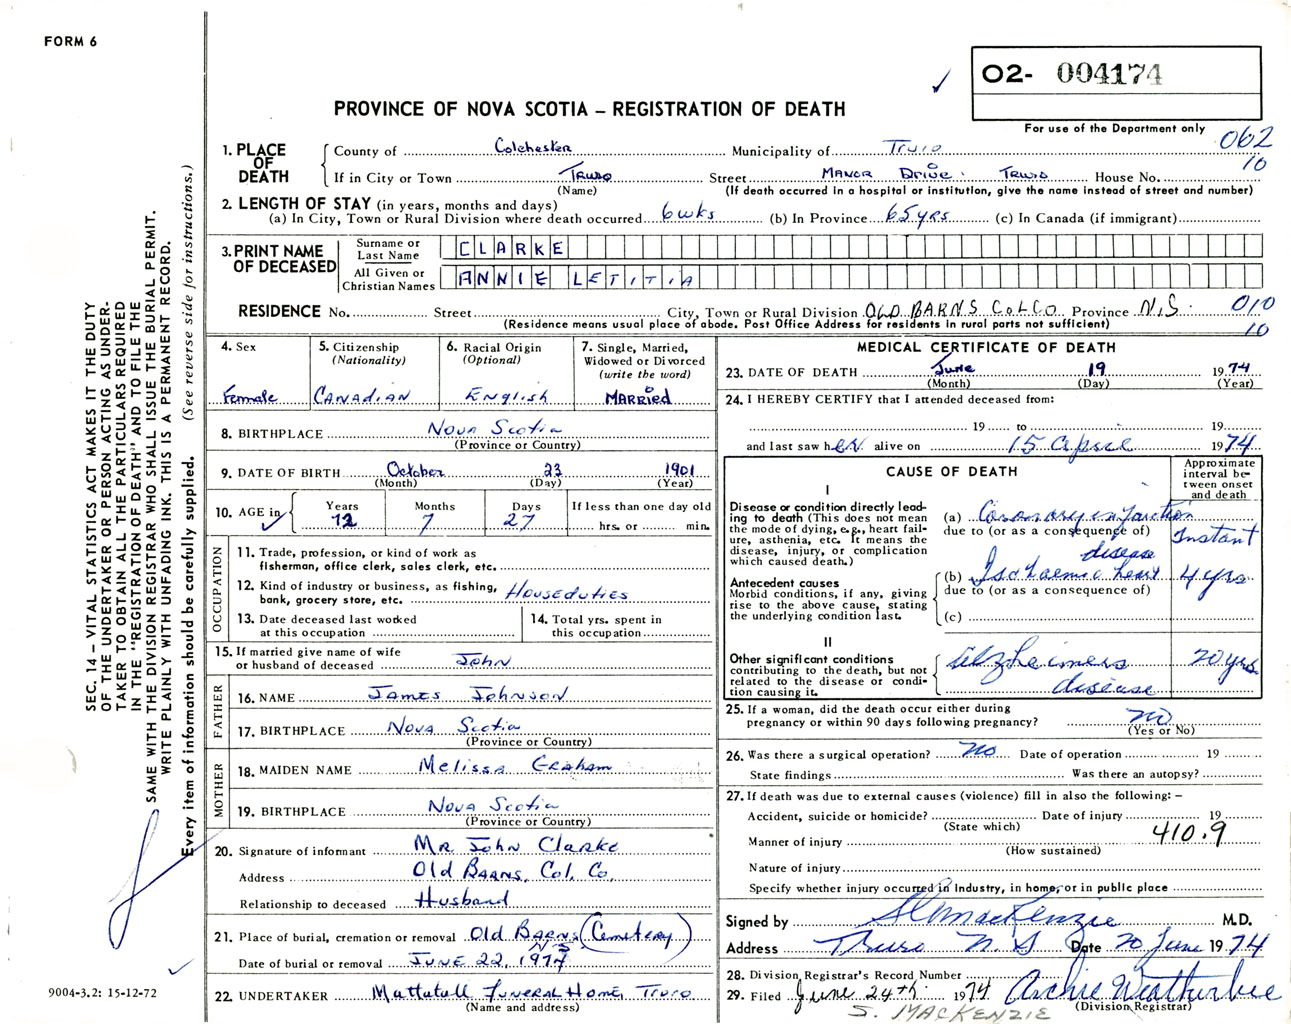 FORM 6
O2- 004174
PROVINCE OF NOVA SCOTIA – REGISTRATION OF DEATH
For use of the Department only
062
10
1. PLACE OF DEATH
County of Colchester Municipality of Truro
If in City or Town Truro Street Manor Drive. Truro House No.
(Name) (If death occurred in a hospital or institution, give the name instead of street and number)
2. LENGTH OF STAY (in years, months and days)
(a) In City, Town or Rural Division where death occurred 6 wks (b) In Province 65 yrs (c) In Canada (if immigrant)
3. PRINT NAME OF DECEASED
Surname or Last Name CLARKE
All Given or Christian Names ANNIE LETITIA
RESIDENCE No. Street City, Town or Rural Division OLD BARNS COL CO Province N.S.
010
10
(Residence means usual place of abode. Post Office Address for residents in rural parts not sufficient)
4. Sex
Female
5. Citizenship
(Nationality)
Canadian
6. Racial Origin
(Optional)
English
7. Single, Married,
Widowed or Divorced
(write the word)
Married
8. BIRTHPLACE Nova Scotia
(Province or Country)
9. DATE OF BIRTH October 23 1901
(Month) (Day) (Year)
10. AGE in
Years Months Days If less than one day old
72 7 27 hrs. or min.
OCCUPATION
11. Trade, profession, or kind of work as
fisherman, office clerk, sales clerk, etc.
12. Kind of industry or business, as fishing,
bank, grocery store, etc. Houseduties
13. Date deceased last worked
at this occupation
14. Total yrs. spent in
this occupation
15. If married give name of wife
or husband of deceased John
FATHER
16. NAME James Johnson
17. BIRTHPLACE Nova Scotia
(Province or Country)
MOTHER
18. MAIDEN NAME Melissa Graham
19. BIRTHPLACE Nova Scotia
(Province or Country)
20. Signature of informant Mr John Clarke
Address Old Barns, Col. Co,
Relationship to deceased Husband
21. Place of burial, cremation or removal Old Barns (Cemetery)
N S
Date of burial or removal June 22, 1974
22. UNDERTAKER Mattatall Funeral Home, Truro
(Name and address)
MEDICAL CERTIFICATE OF DEATH
23. DATE OF DEATH June 19 1974
(Month) (Day) (Year)
24. I HEREBY CERTIFY that I attended deceased from:
19 to 19
and last saw her alive on 15 April 1974
CAUSE OF DEATH
Approximate interval between onset and death
I
Disease or condition directly leading to death (This does not mean the mode of dying, e.g., heart failure, asthenia, etc. It means the disease, injury, or complication which caused death.)
(a) Coronary infarction Instant
due to (or as a consequence of)
Antecedent causes
Morbid conditions, if any, giving rise to the above cause, stating the underlying condition last.
(b) Ischaemic heart disease 4 yrs
due to (or as a consequence of)
(c)
II
Other significant conditions
contributing to the death, but not related to the disease or condition causing it.
Alzheimers disease 20 yrs
25. If a woman, did the death occur either during
pregnancy or within 90 days following pregnancy? no
(Yes or No)
26. Was there a surgical operation? No Date of operation 19
State findings Was there an autopsy?
27. If death was due to external causes (violence) fill in also the following: –
Accident, suicide or homicide? Date of injury 19
(State which)
410.9
Manner of injury
(How sustained)
Nature of injury
Specify whether injury occurred in industry, in home, or in public place
Signed by S MacKenzie M.D.
Address Truro N. S Date 20 June 1974
28. Division Registrar's Record Number
29. Filed June 24th 1974 Archie Weatherbee
(Division Registrar)
S. MACKENZIE
SEC. 14 – VITAL STATISTICS ACT MAKES IT THE DUTY
OF THE UNDERTAKER OR PERSON ACTING AS UNDER-
TAKER TO OBTAIN ALL THE PARTICULARS REQUIRED
IN THE "REGISTRATION OF DEATH" AND TO FILE THE
SAME WITH THE DIVISION REGISTRAR WHO SHALL ISSUE THE BURIAL PERMIT.
WRITE PLAINLY WITH UNFADING INK. THIS IS A PERMANENT RECORD.
Every item of information should be carefully supplied. (See reverse side for instructions.)
9004-3.2: 15-12-72